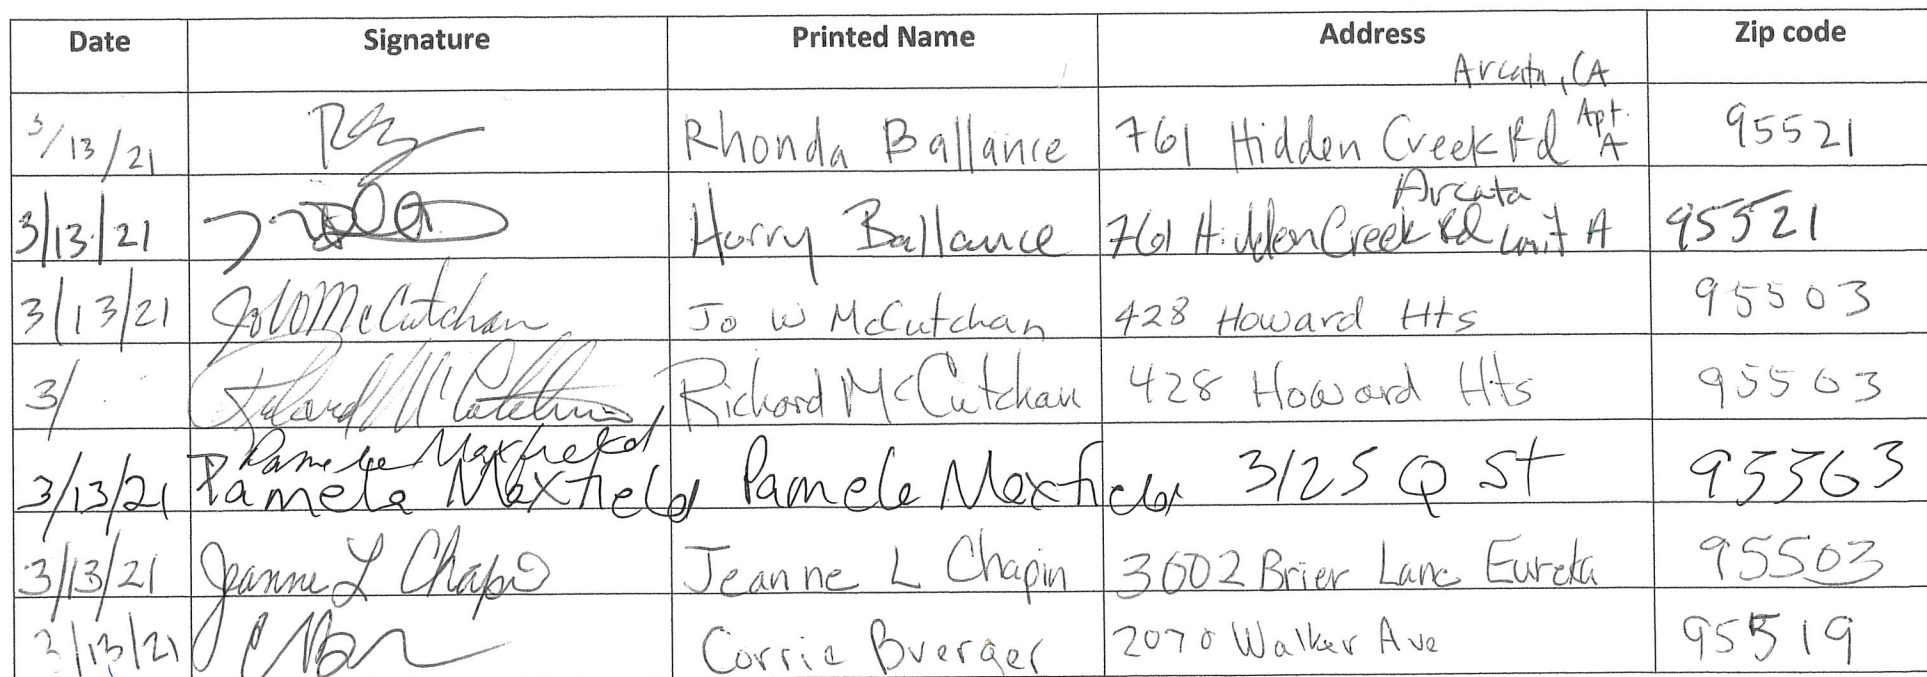 Date Signature Printed Name Address Zip code
Arcata, CA
3/13/21 Rhonda Ballance 761 Hidden Creek Rd Apt. A 95521
Arcata
3/13/21 Harry Ballance 761 Hidden Creek Rd unit A 95521
3/13/21 Jo W McCutchan Jo W McCutchan 428 Howard Hts 95503
3/ Richard McCutchan Richard McCutchan 428 Howard Hts 95503
Pamela Maxfield
3/13/21 Pamela Maxfield Pamela Maxfield 3125 Q St 95503
3/13/21 Jeanne L Chapin Jeanne L Chapin 3602 Brier Lane Eureka 95503
3/13/21 Corrie Buerger 2070 Walker Ave 95519